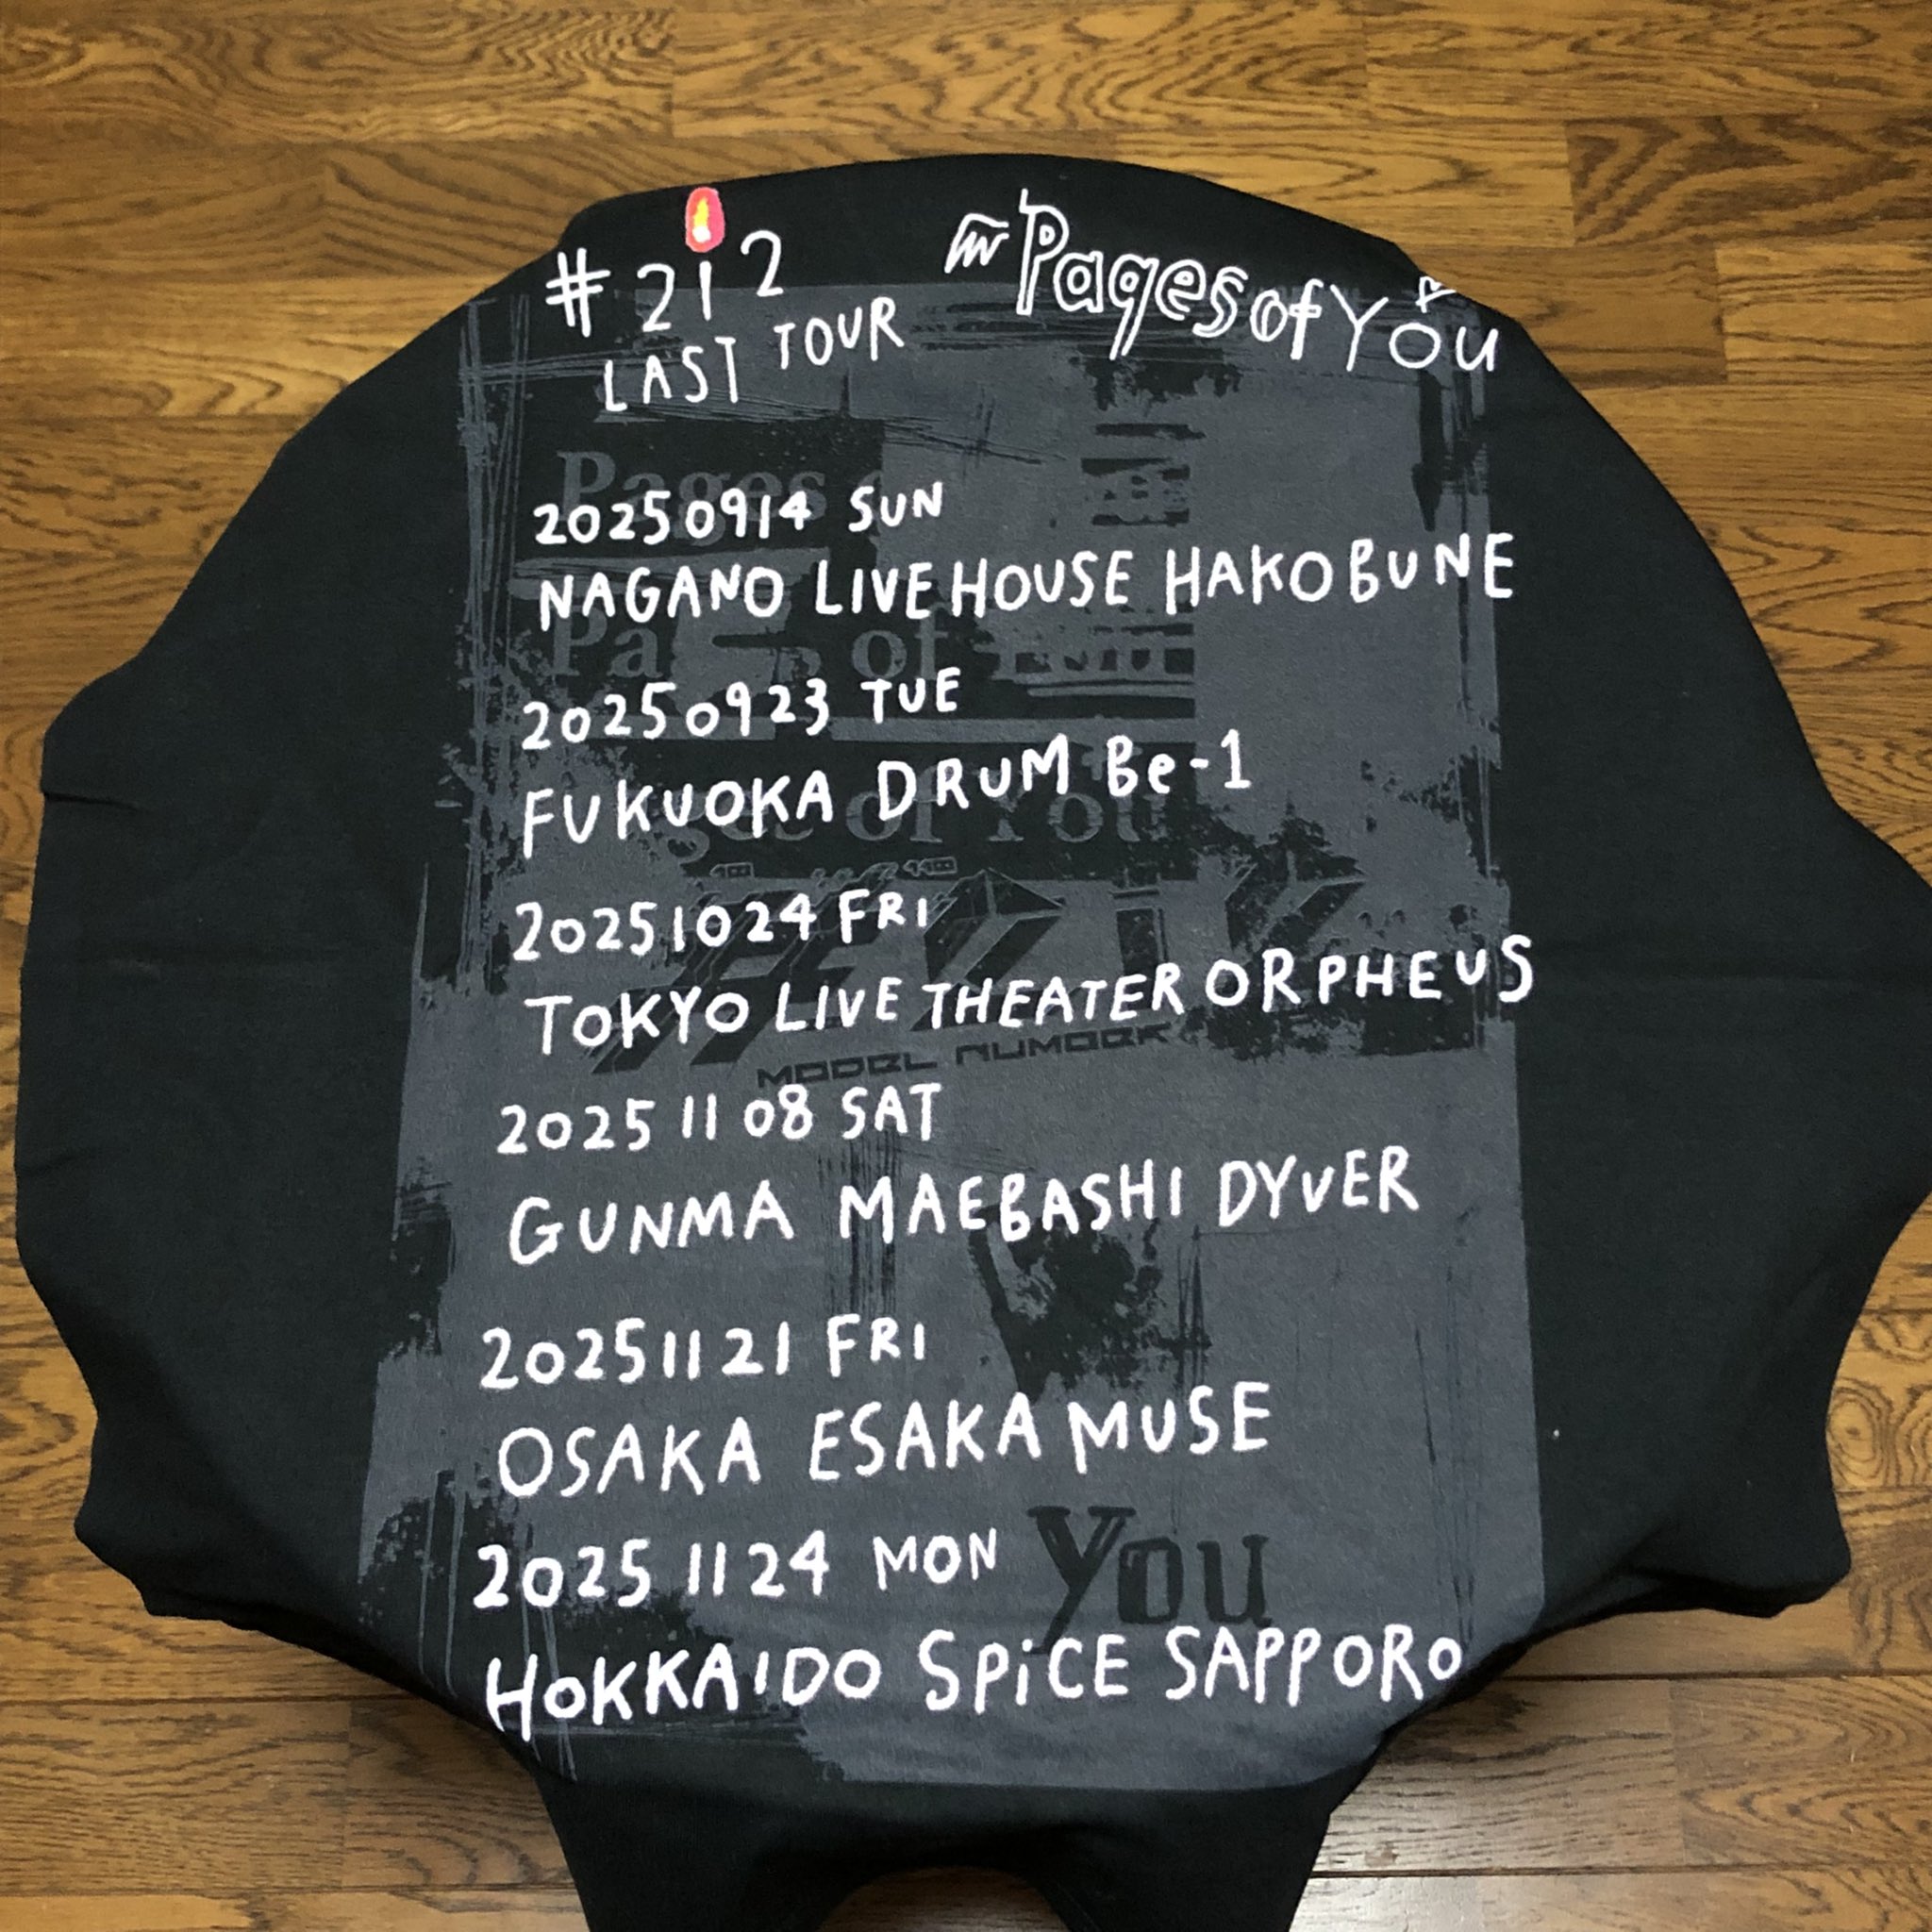 #212
LAST TOUR
Pages of You
20250914 SUN
NAGANO LIVE HOUSE HAKOBUNE
20250923 TUE
FUKUOKA DRUM Be-1
20251024 FRI
TOKYO LIVE THEATER ORPHEUS
MODEL NUMBER
2025 11 08 SAT
GUNMA MAEBASHI DYVER
20251121 FRI
OSAKA ESAKA MUSE
2025 11 24 MON
You
HOKKAIDO SPiCE SAPPORO